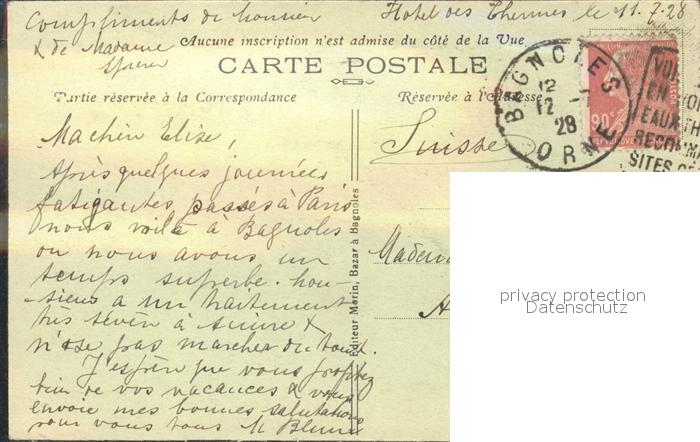 Compliments de Monsieur
& de Madame
Hotel des Thermes le 11.7.28
Aucune inscription n'est admise du côté de la Vue
CARTE POSTALE
Partie réservée à la Correspondance
Réservée à l'Adresse
BAGNOLES
12
12 - 7
28
ORNE
90c
POSTES
VOI
EN
EAUX TH
RECOMMA
SITES
Ma chère Elise,
Suisse
Après quelques journées
fatigantes passées à Paris
nous voilà à Bagnoles
ou nous avons un
temps superbe. Mon-
-sieur a un traitement
très sévère à suivre &
n'ose pas marcher du tout.
J'espère que vous profitez
bien de vos vacances & vous
envoie mes bonnes salutations
pour vous tous M
Editeur Morin, Bazar à Bagnoles
Madem
A
privacy protection
Datenschutz